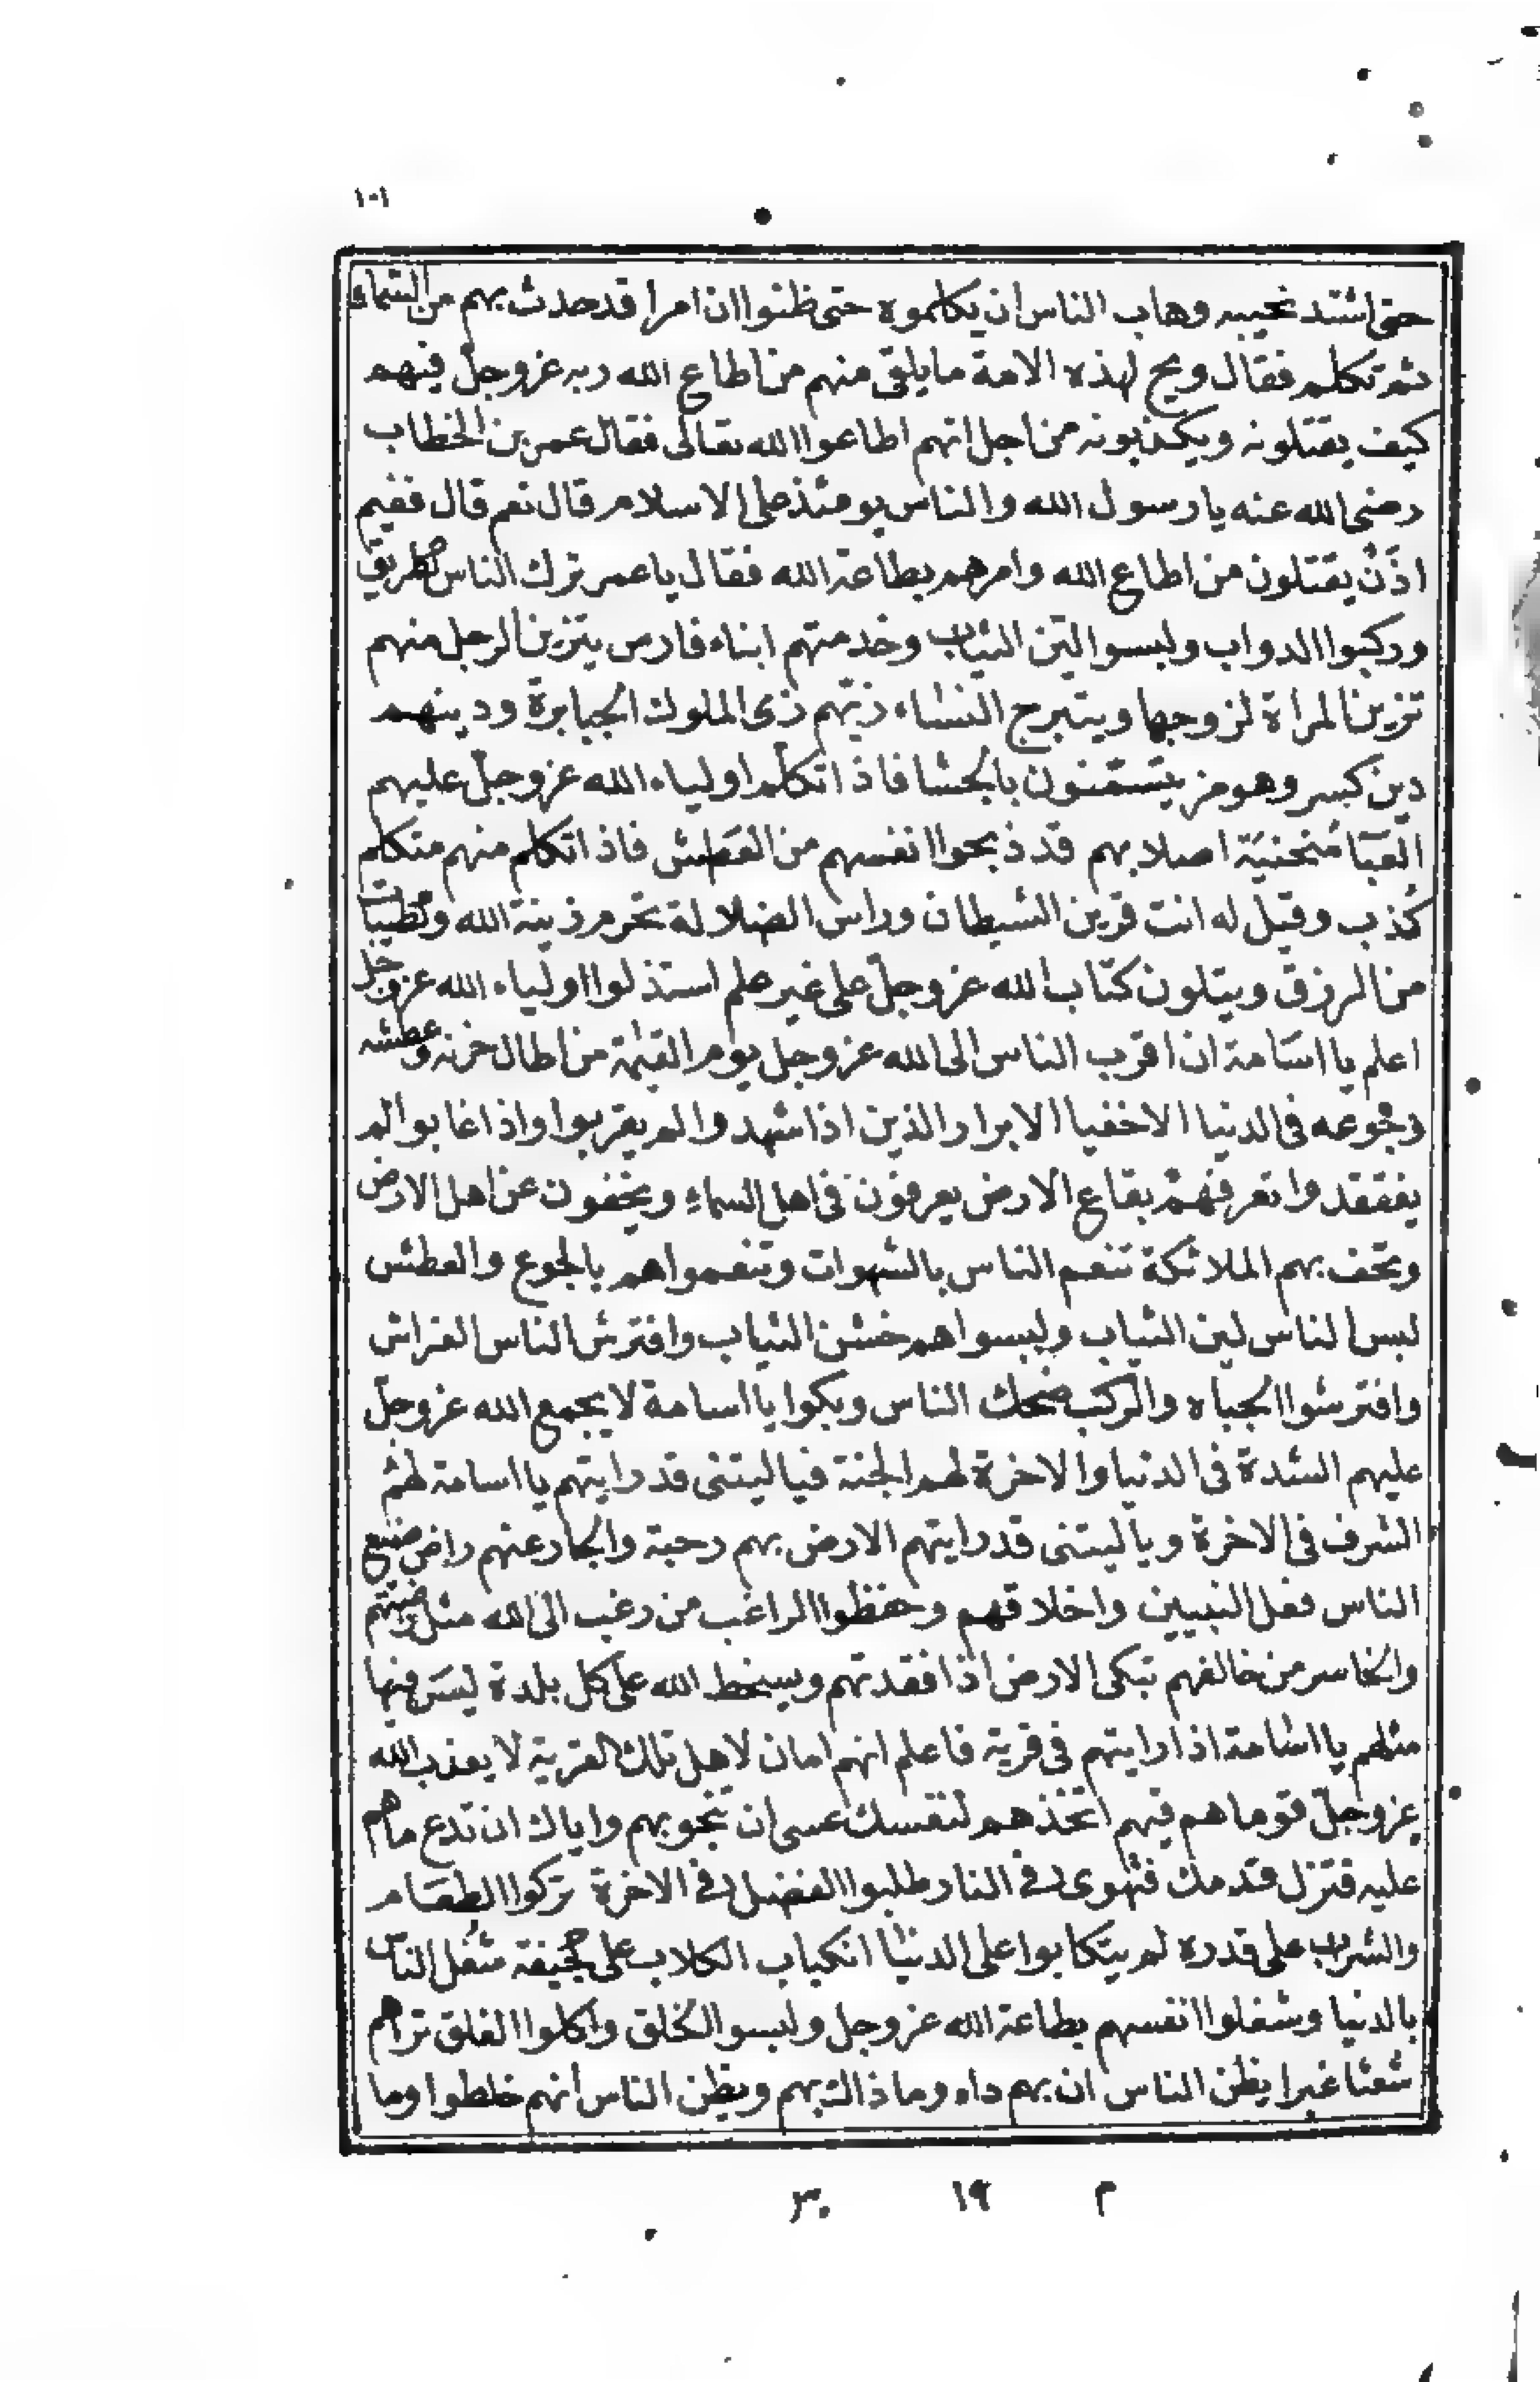 ١٠١
حتى اشتد نحيبه وهاب الناس ان يكلموه حتى ظنوا ان امرا قد حدث بهم من السماء
ثم تكلم فقال ويح لهذه الامة ما يلقى منهم من اطاع الله ربه عز وجل فيهم
كيف يقتلونه ويكذبونه من اجل انهم اطاعوا الله تعالى فقال عمر بن الخطاب
رضى الله عنه يا رسول الله والناس يومئذ على الاسلام قال نعم قال ففيم
اذن يقتلون من اطاع الله وامرهم بطاعة الله فقال يا عمر ترك الناس الطريق
وركبوا الدواب ولبسوا لين الثياب وخدمتهم ابناء فارس يتزين الرجل منهم
تزين المراة لزوجها ويتبرج النساء زيهم زى الملوك الجبابرة ودينهم
دين كسر وهومز يتسمنون بالجشا فاذا تكلم اولياء الله عز وجل عليهم
العبا منحنية اصلابهم قد ذبحوا انفسهم من العطش فاذا تكلم منهم متكلم
كذب وقيل له انت قرين الشيطان وراس الضلالة تحرم زينة الله والطيبات
من الرزق ويتلون كتاب الله عز وجل على غير علم استذلوا اولياء الله عز وجل
اعلم يا اسامة ان اقرب الناس الى الله عز وجل يوم القيمة من اطال حزنه وعطشه
وجوعه فى الدنيا الاخفيا الابرار الذين اذا شهدوا لم يقربوا واذا غابوا لم
يفقدوا تعرفهم بقاع الارض يعرفون فى اهل السماء ويخفون عن اهل الارض
وتحف بهم الملائكة تنعم الناس بالشهوات وتنعموا هم بالجوع والعطش
لبس الناس لين الثياب ولبسوا هم خشن الثياب وافترش الناس الفراش
وافترشوا الجباه والركب ضحك الناس وبكوا يا اسامة لا يجمع الله عز وجل
عليهم الشدة فى الدنيا والاخرة لهم الجنة فياليتنى قد رايتهم يا اسامة لهم
الشرف فى الاخرة ويا ليتنى قد رايتهم الارض بهم رحبة والجبار عنهم راض ضيع
الناس فعل النبيين واخلاقهم وحفظوا الراغب من رغب الى الله مثل رغبتهم
والخاسر من خالفهم تبكى الارض اذا فقدتهم ويسخط الله على كل بلدة ليس فيها
مثلهم يا اسامة اذا رايتهم فى قرية فاعلم انهم امان لاهل تلك القرية لا يعذب الله
عز وجل قوما هم فيهم اتخذهم لنفسك عسى ان تنجو بهم واياك ان تدع ما هم
عليه فتزل قدمك فتهوى فى النار طلبوا الفضل فى الاخرة تركوا الطعام
والشراب على قدره لم يتكابوا على الدنيا انكباب الكلاب على جيفة شغل الناس
بالدنيا وشغلوا انفسهم بطاعة الله عز وجل ولبسوا الخلق واكلوا الفلق تراهم
شعثا غبرا يظن الناس ان بهم داء وما ذاك بهم ويظن الناس انهم خلطوا وما
م ١٩ ٣٠